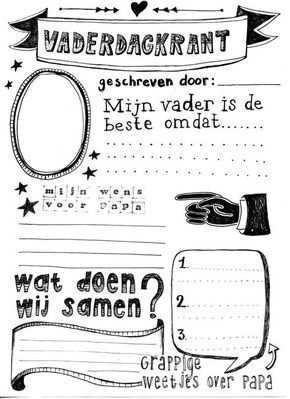 VADERDAGKRANT
geschreven door:
Mijn vader is de
beste omdat.......
mijn wens
voor papa
wat doen
wij samen?
1.
2.
3.
Grappige
weetjes over papa